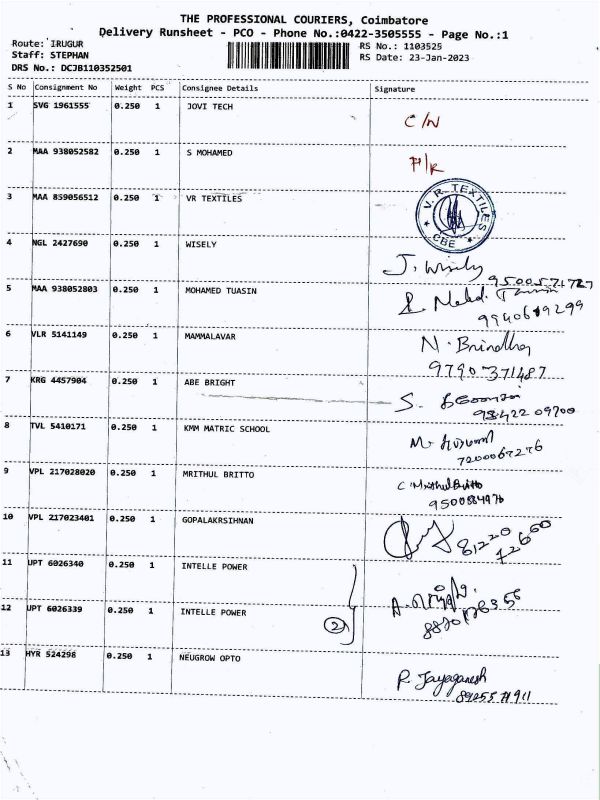 THE PROFESSIONAL COURIERS, Coimbatore
Delivery Runsheet - PCO - Phone No.:0422-3505555 - Page No.:1
Route: IRUGUR
Staff: STEPHAN
DRS No.: DCJB110352501
RS No.: 1103525
RS Date: 23-Jan-2023
S No Consignment No Weight PCS Consignee Details Signature
1 SVG 1961555 0.250 1 JOVI TECH C/N
2 MAA 938052582 0.250 1 S MOHAMED P/R
3 MAA 859056512 0.250 1 VR TEXTILES V. R. TEXTILES CBE
4 NGL 2427690 0.250 1 WISELY J. Wisely
9500571727
5 MAA 938052803 0.250 1 MOHAMED TUASIN
9940619299
6 VLR 5141149 0.250 1 MAMMALAVAR N. Brindha
9790371487
7 KRG 4457904 0.250 1 ABE BRIGHT S.
98422 09700
8 TVL 5410171 0.250 1 KMM MATRIC SCHOOL
7200067276
9 VPL 217028020 0.250 1 MRITHUL BRITTO C. Mrithul Britto
10 VPL 217023401 0.250 1 GOPALAKRSIHNAN
81220
72600
11 UPT 6026340 0.250 1 INTELLE POWER
12 UPT 6026339 0.250 1 INTELLE POWER 2
13 HYR 524298 0.250 1 NEUGROW OPTO P. Jayaganesh